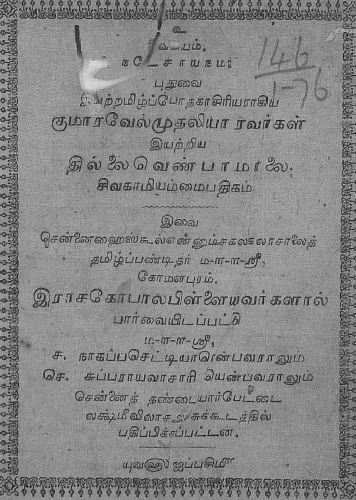 உ
நடேசாயநம:
புதுவை
இயற்றமிழ்ப்போதகாசிரியராகிய
குமாரவேல்முதலியாரவர்கள்
இயற்றிய
தில்லைவெண்பாமாலை.
சிவகாமியம்மைபதிகம்
இவை
சென்னைஹைஸ்கூல்என்னும்சகலகலாசாலைத்
தமிழ்ப்பண்டிதர் ம-ள-ள-ஸ்ரீ,
கோமளபுரம்.
இராசகோபாலபிள்ளையவர்களால்
பார்வையிடப்பட்டு
ம-ள-ள-ஸ்ரீ,
ச. நாகப்பசெட்டியாரென்பவராலும்
செ. சுப்பராயவாசாரி யென்பவராலும்
சென்னைத் தண்டையார்பேட்டை
லக்ஷ்மீவிலாசஅச்சுக்கூடத்தில்
பதிப்பிக்கப்பட்டன.
யுவஹு ஐப்பசிமீ
146
1-76